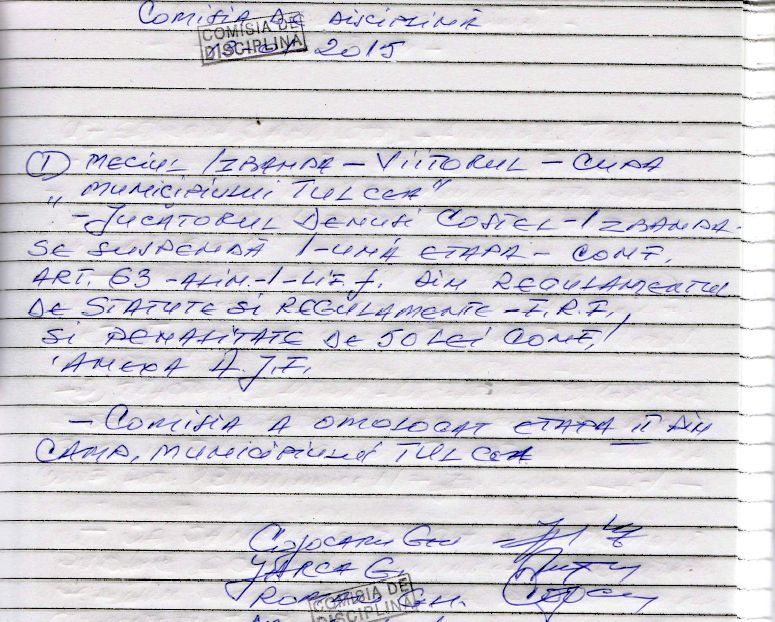 COMISIA DE DISCIPLINĂ
COMISIA DE
DISCIPLINA
2015
① MECIUL IZBANDA – VIITORUL – CUPA
„MUNICIPIULUI TULCEA"
– JUCĂTORUL DENUSI COSTEL – IZBANDA
SE SUSPENDĂ 1-UNĂ ETAPĂ – CONF.
ART. 63 – ALIN. – 1 – LIT. f. DIN REGULAMENTUL
DE STATUTE SI REGULAMENTE – F.R.F.,
SI PENALITATE DE 50 LEI CONF.
ANEXA A.J.F.
– COMISIA A OMOLOGAT ETAPA II DIN
CAMP. MUNICIPIULUI TULCEA
COJOCARU
JARCA G.
GH.
COMISIA DE
DISCIPLINA